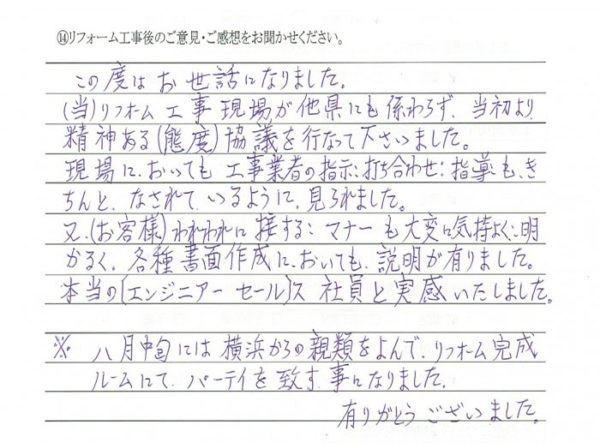 ⑭リフォーム工事後のご意見・ご感想をお聞かせください。
この度はお世話になりました。
(当)リフォーム工事現場が他県にも係わらず、当初より
精神ある(態度)協議を行なって下さいました。
現場に、おいても工事業者の指示:打ち合わせ:指導も、き
ちんと、なされて、いるように、見られました。
又、(お客様)われわれに接する:マナーも大変に気持よく:明
かるく、各種書面作成に、おいても、説明が有りました。
本当の〔エンジニアーセール〕ス社員と実感いたしました。
※ 八月中旬には横浜からの親類をよんで、リフォーム完成
ルームにて、パーテイを致す、事になりました。
有りがとうございました。